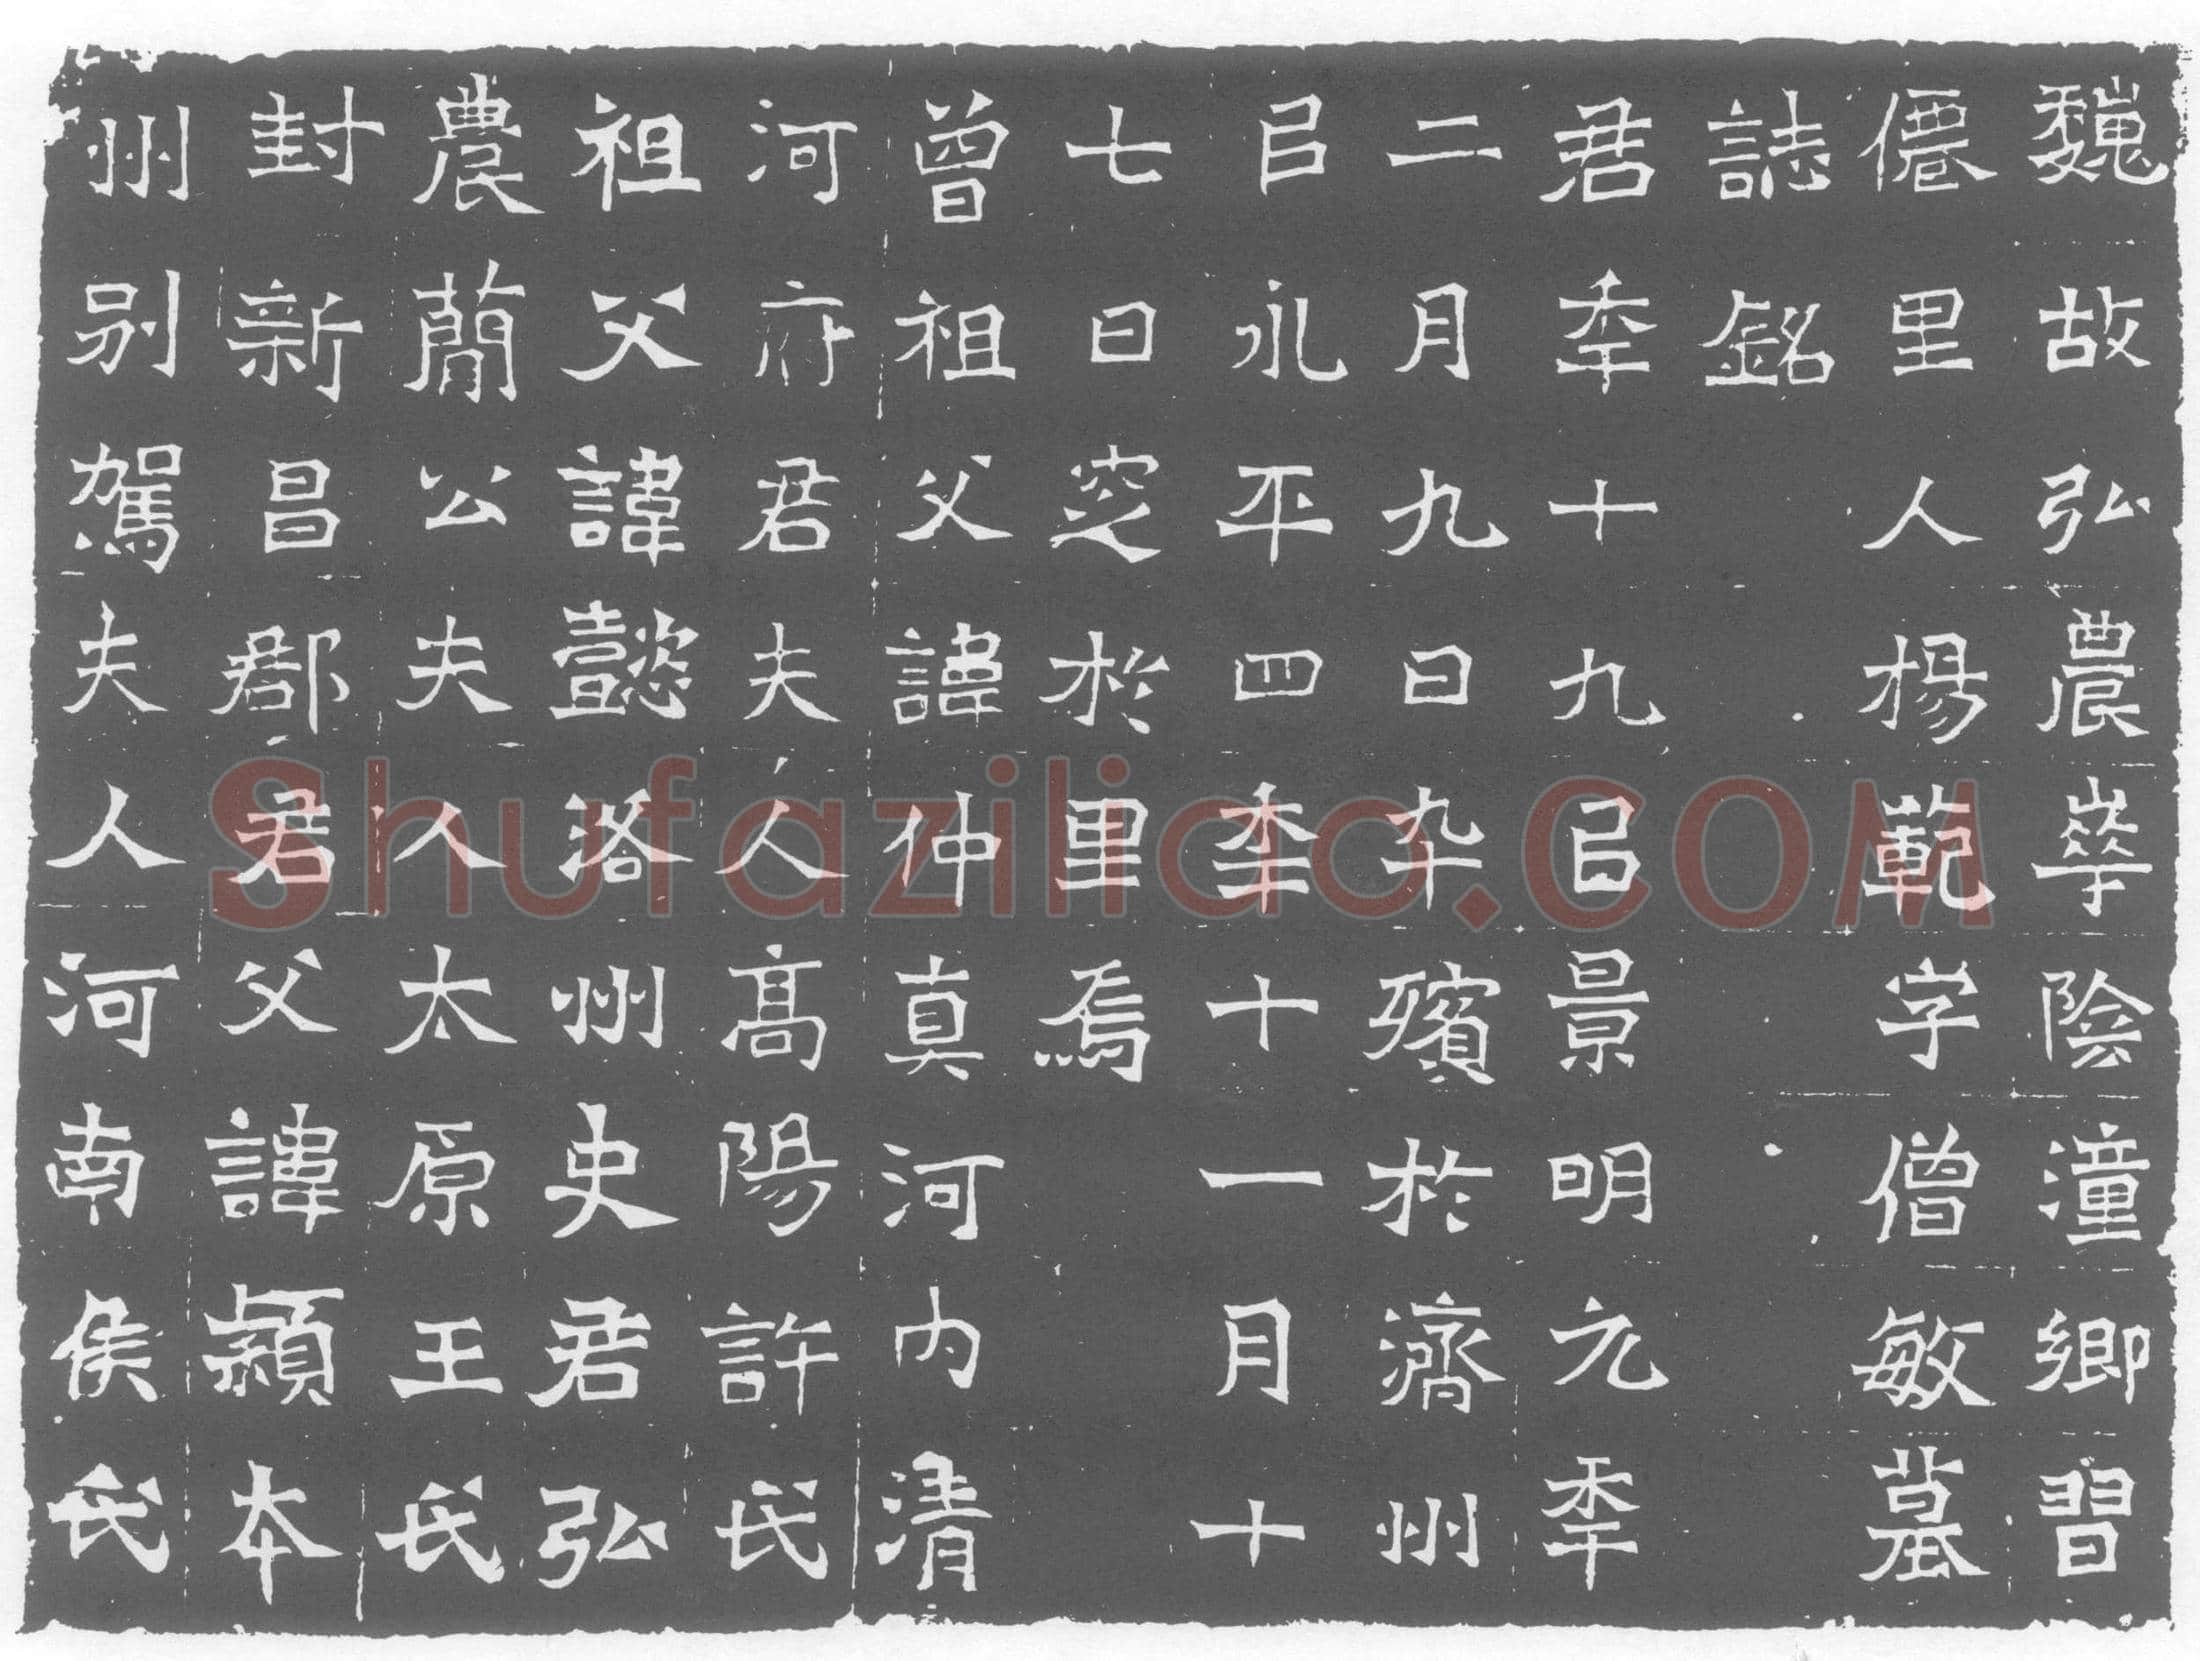 魏故弘農華陰潼鄉習
僊里人楊範字僧敏墓
誌銘
君季十九㠯景明元季
二月九日卒殯於濟州
㠯永平四季十一月十
七日窆於里焉
曾祖父諱仲真河内清
河府君夫人高陽許氏
祖父諱懿洛州史君弘
農蕳公夫人太原王氏
封新昌郡君父諱穎本
州別駕夫人河南侯氏
Shufaziliao.COM